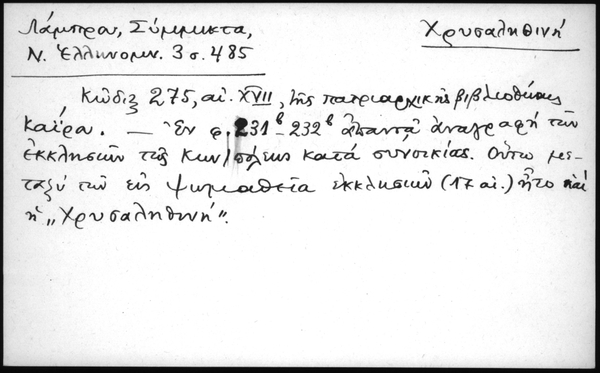 Λάμπρου, Σύμμικτα,
Χρυσαληθινή
Ν. Ἑλληνομν. 3 σ. 485
Κῶδιξ 275, αἰ. XVII, τῆς πατριαρχικῆς βιβλιοθήκης
Καΐρου. — Ἐν φ. 231β-232β ἀπαντᾷ ἀναγραφὴ τῶν
ἐκκλησιῶν τῆς Κων/πόλεως κατὰ συνοικίας. Οὕτω με-
ταξὺ τῶν εἰς Ψωμαθεῖα ἐκκλησιῶν (17 αἰ.) ἦτο καὶ
ἡ „Χρυσαληθινή".